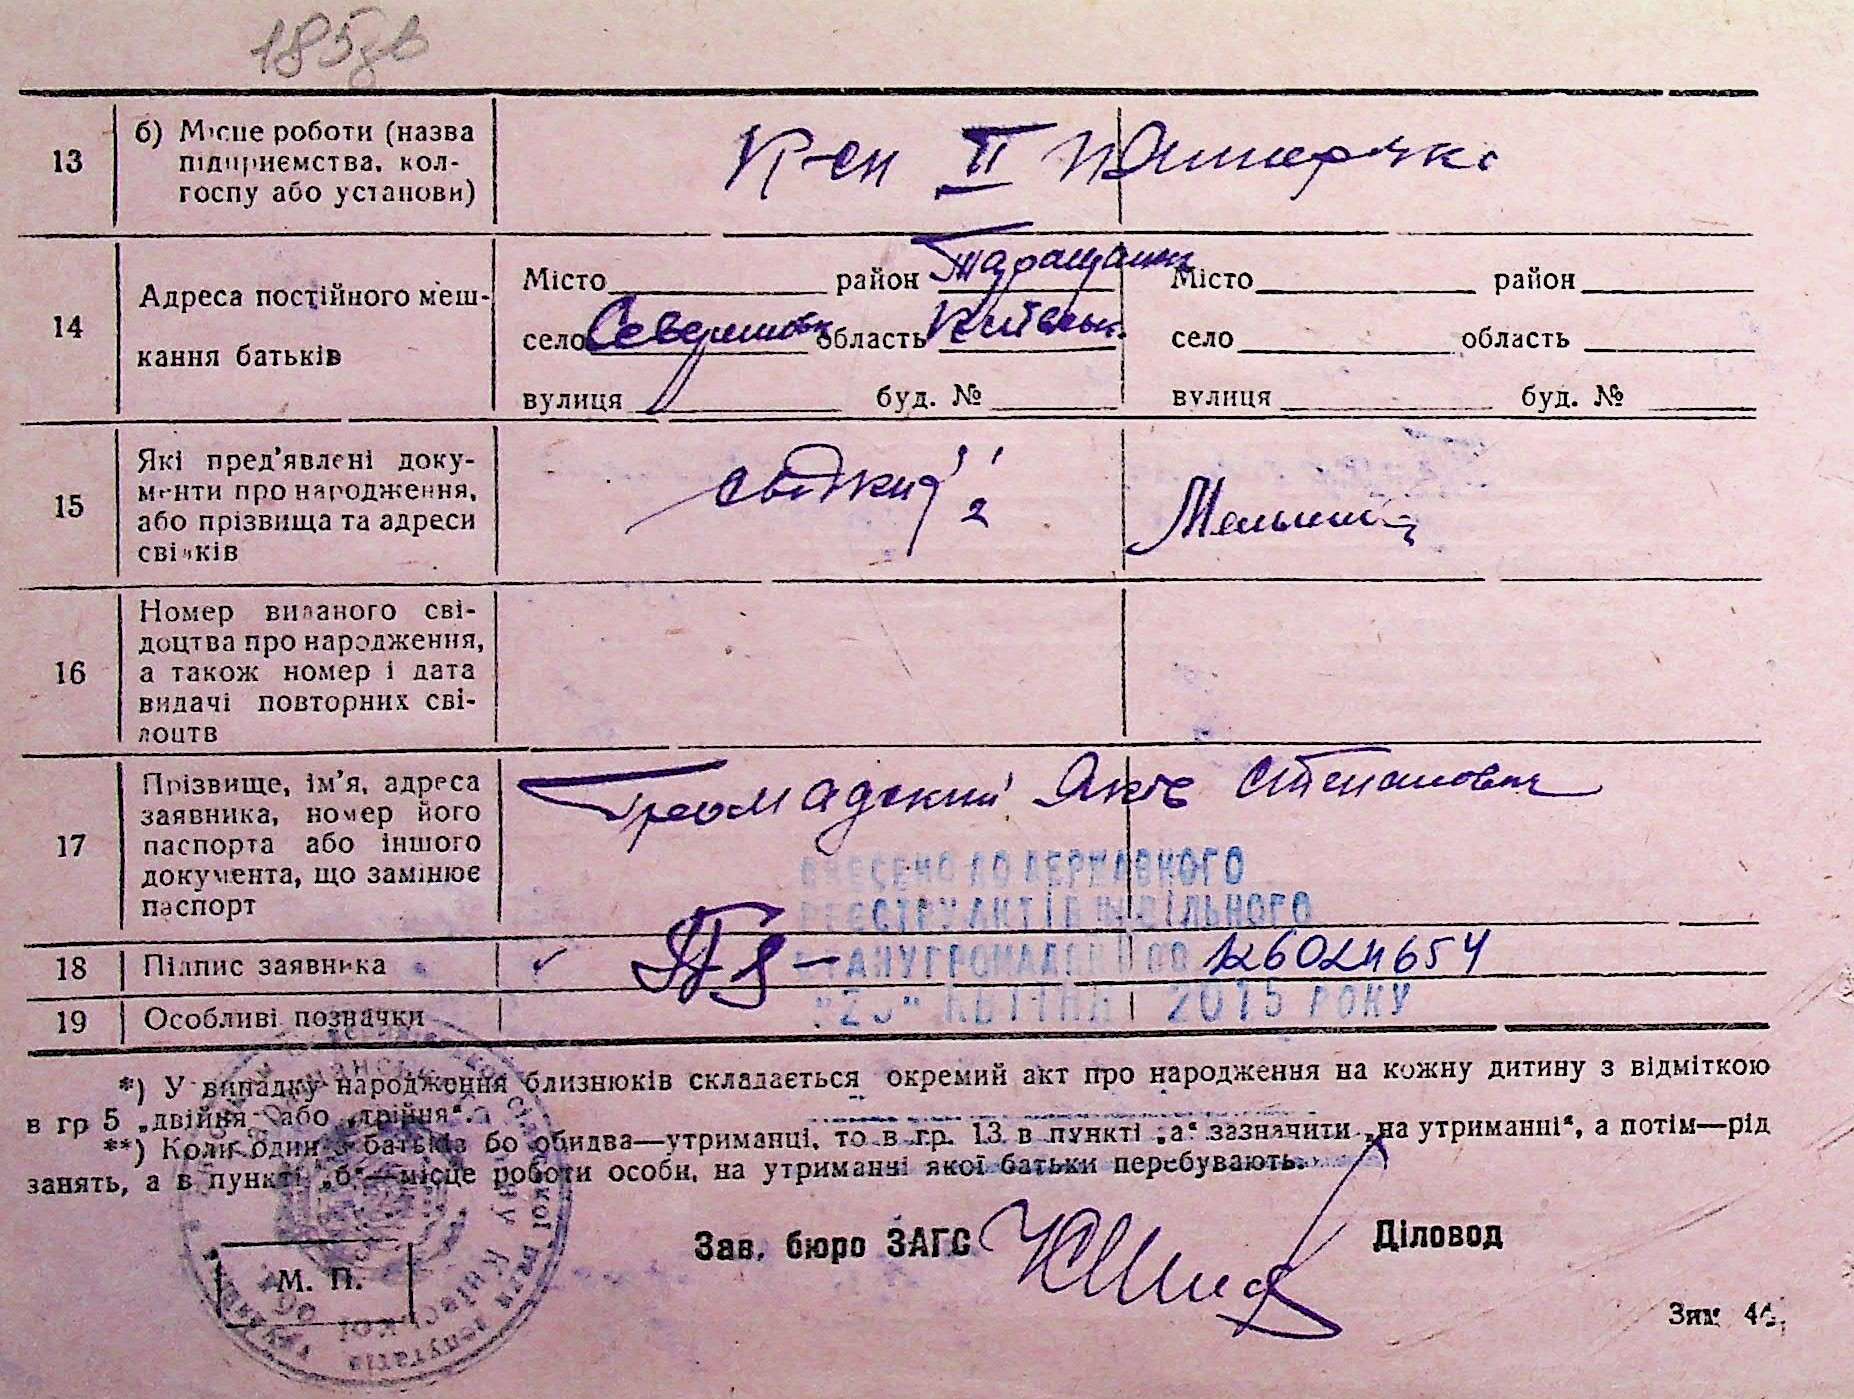 185зв
13
б) Місце роботи (назва
підприємства, кол-
госпу або установи)
К-сп ІІ П
14
Адреса постійного меш-
кання батьків
Місто район Таращанськ
село область Київськ.
вулиця буд. №
Місто район
село область
вулиця буд. №
15
Які пред'явлені доку-
менти про народження,
або прізвища та адреси
свідків
свідки 2
16
Номер виданого сві-
доцтва про народження,
а також номер і дата
видачі повторних сві-
доцтв
17
Прізвище, ім'я, адреса
заявника, номер його
паспорта або іншого
документа, що замінює
паспорт
Громадский Яків Степанович
ВНЕСЕНО ДО ДЕРЖАВНОГО
РЕЄСТРУ АКТІВ ЦИВІЛЬНОГО
СТАНУ ГРОМАДЯН ПО 126024654
"23" КВІТНЯ 2015 РОКУ
18
Підпис заявника
19
Особливі позначки
*) У випадку народження близнюків складається окремий акт про народження на кожну дитину з відміткою
в гр 5 „двійня" або „трійня".
**) Коли один з батьків бо обидва—утриманці, то в гр. 13 в пункті „а" зазначити „на утриманні", а потім—рід
занять, а в пункті „б"—місце роботи особи, на утриманні якої батьки перебувають.
Зав. бюро ЗАГС
Діловод
М. П.
Київської
депутатів
Зам 44